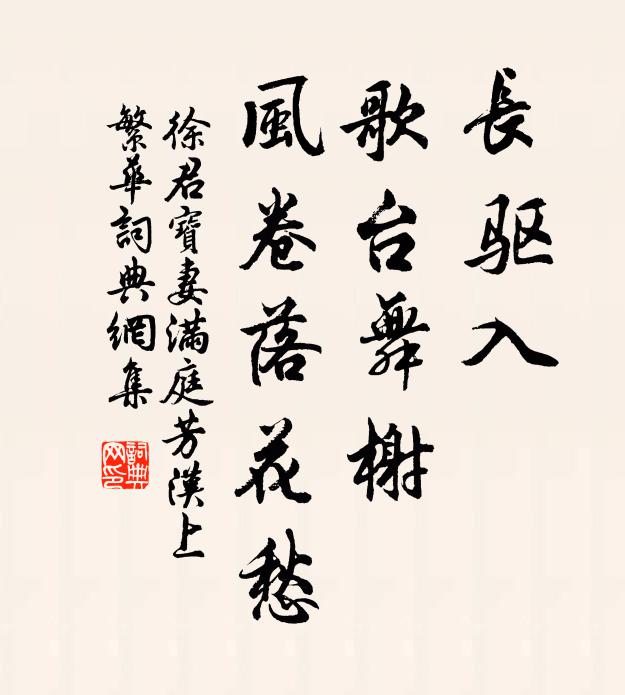 長驱入
歌台舞榭
風卷落花愁
徐君寶妻滿庭芳漢上
繁華詞典網集
詞典
网印